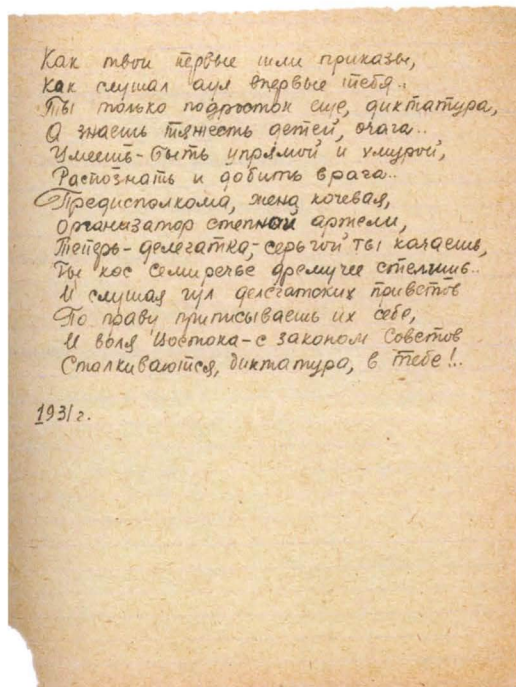 Как твои первые шли приказы,
Как слушал аул впервые тебя..
Ты только подросток еще, диктатура,
А знаешь тяжесть детей, очага..
Умеешь-быть упрямой и хмурой,
Распознать и добить врага..
Предисполкома, жена кочевая,
Организатор степной артели,
Теперь-делегатка,-серьгой ты качаешь,
Ты кос семиречье дремучее стелишь..
И слушая гул делегатских приветов
По праву приписываешь их себе,
И воля Востока-с законом Советов
Сталкиваются, диктатура, в тебе!..
1931г.